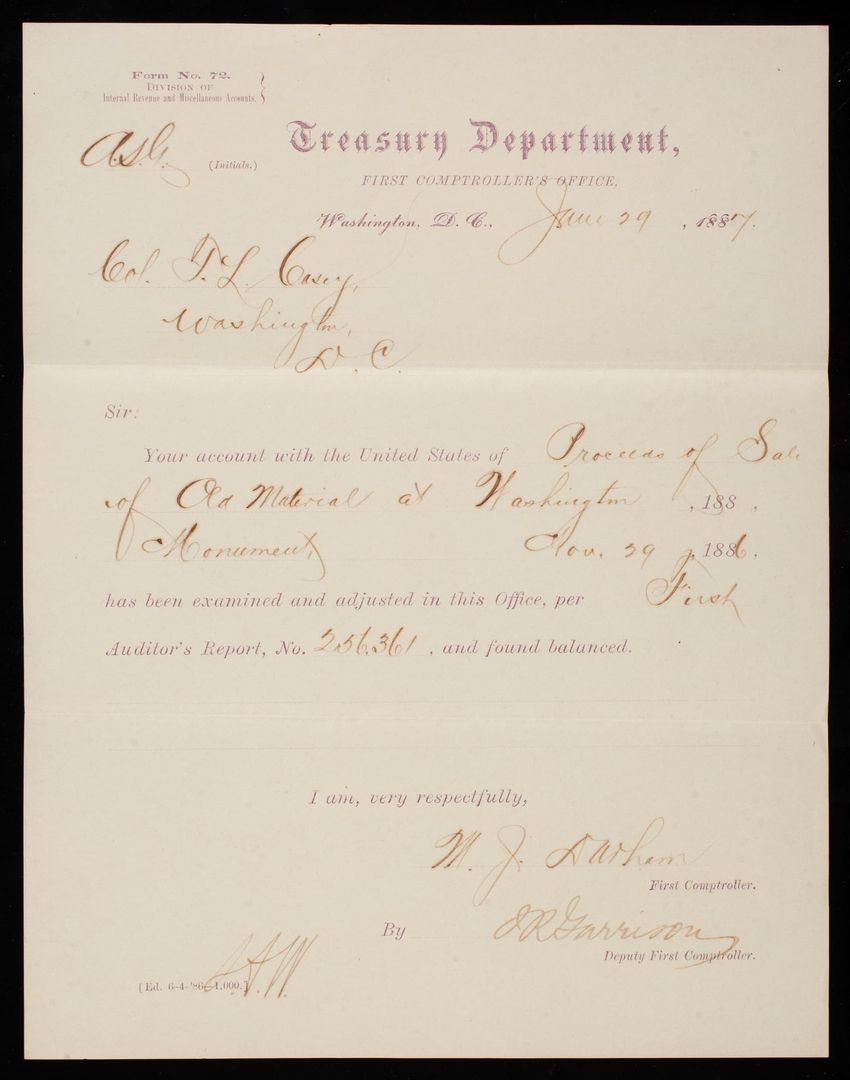 Form No. 72.
DIVISION OF
Internal Revenue and Miscellaneous Accounts.
A.S.G. (Initials.)
Treasury Department,
FIRST COMPTROLLER'S OFFICE,
Washington, D. C., June 29, 1887.
Col. T. L. Casey,
Washington,
D. C.
Sir:
Your account with the United States of Proceeds of Sale
of Old Material at Washington, 188 ,
Monument, Nov. 29, 1886,
has been examined and adjusted in this Office, per First
Auditor's Report, No. 256,361, and found balanced.
I am, very respectfully,
M. J. Durham
First Comptroller.
By J R Garrison
Deputy First Comptroller.
[Ed. 6-4-'86—1,000.]